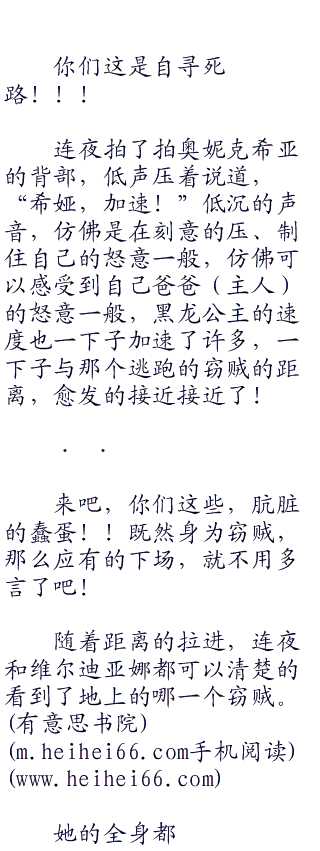 你们这是自寻死
路！！！
连夜拍了拍奥妮克希亚
的背部，低声压着说道，
“希娅，加速！”低沉的声
音，仿佛是在刻意的压、制
住自己的怒意一般，仿佛可
以感受到自己爸爸（主人）
的怒意一般，黑龙公主的速
度也一下子加速了许多，一
下子与那个逃跑的窃贼的距
离，愈发的接近接近了！
． ．
来吧，你们这些，肮脏
的蠢蛋！！既然身为窃贼，
那么应有的下场，就不用多
言了吧！
随着距离的拉进，连夜
和维尔迪亚娜都可以清楚的
看到了地上的哪一个窃贼。
(有意思书院)
(m.heihei66.com手机阅读)
(www.heihei66.com)
她的全身都